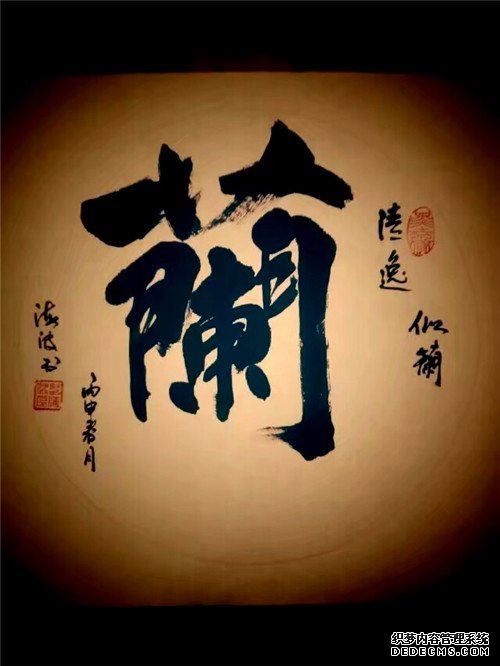 清逸
似蘭
蘭
丙申春月
海波书
织梦内容管理系统
DEDECMS.COM